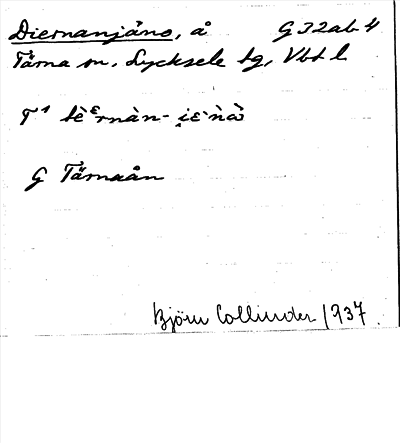 Diernanjåno, å G 32ab 4
Tärna sn, Lycksele lg, Vbt l.
G Tärnaån
Björn Collinder 1937